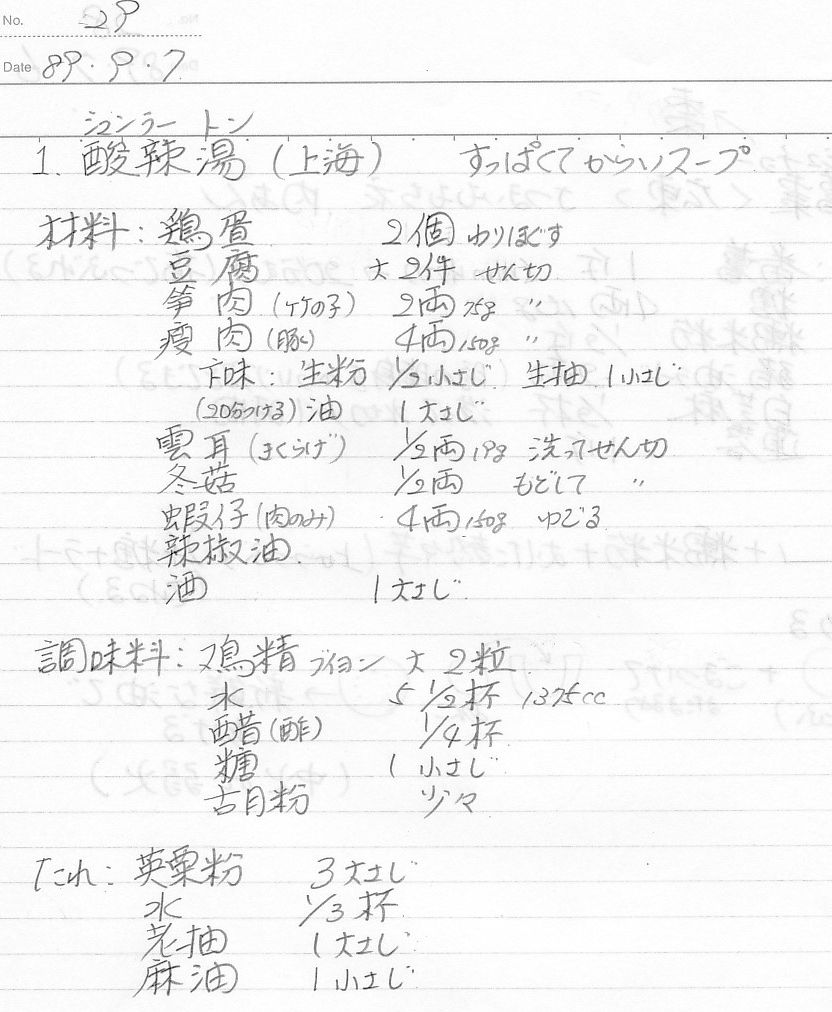 No. 29
Date 89・9・7
シュンラー トン
1. 酸辣湯 (上海) すっぱくてからいスープ
材料: 鶏蛋 2個 わりほぐす
豆腐 大 2件 せん切
筍肉 (竹の子) 2両 75g 〃
瘦肉 (豚) 4両 150g 〃
下味: 生粉 1/2小さじ 生抽 1小さじ
(20分つける) 油 1大さじ
雲耳 (きくらげ) 1/2両 19g 洗ってせん切
冬菇 1/2両 もどして 〃
蝦仔 (肉のみ) 4両 150g ゆでる
辣椒油
酒 1大さじ
調味料: 鸡精 ブイヨン 大 2粒
水 5 1/2杯 1375cc
醋 (酢) 1/4杯
糖 1小さじ
古月粉 少々
たれ: 英粟粉 3大さじ
水 1/3杯
老抽 1大さじ
麻油 1小さじ